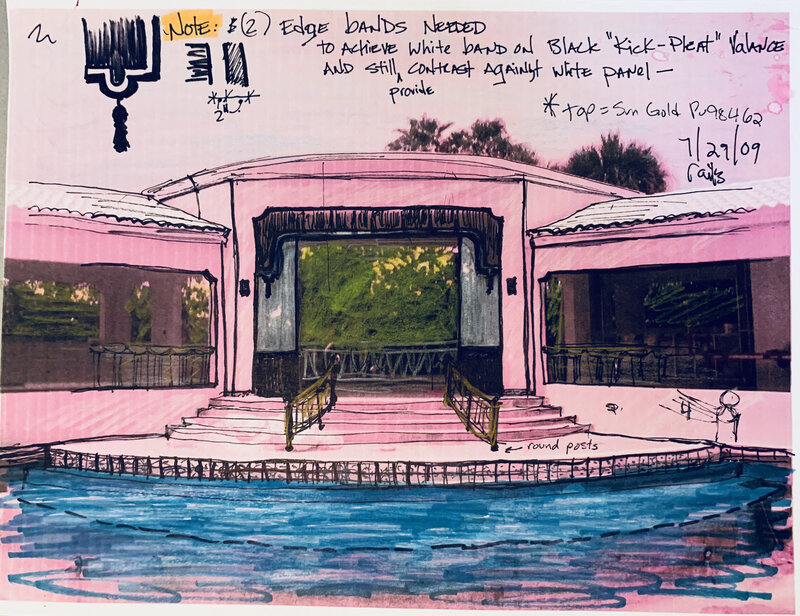 Note: (2) Edge bands Needed
to Achieve white band on Black "Kick-Pleat" Valance
And still provide contrast Against white panel —
2"
* top = Sun Gold Pu98462
7/29/09
round posts